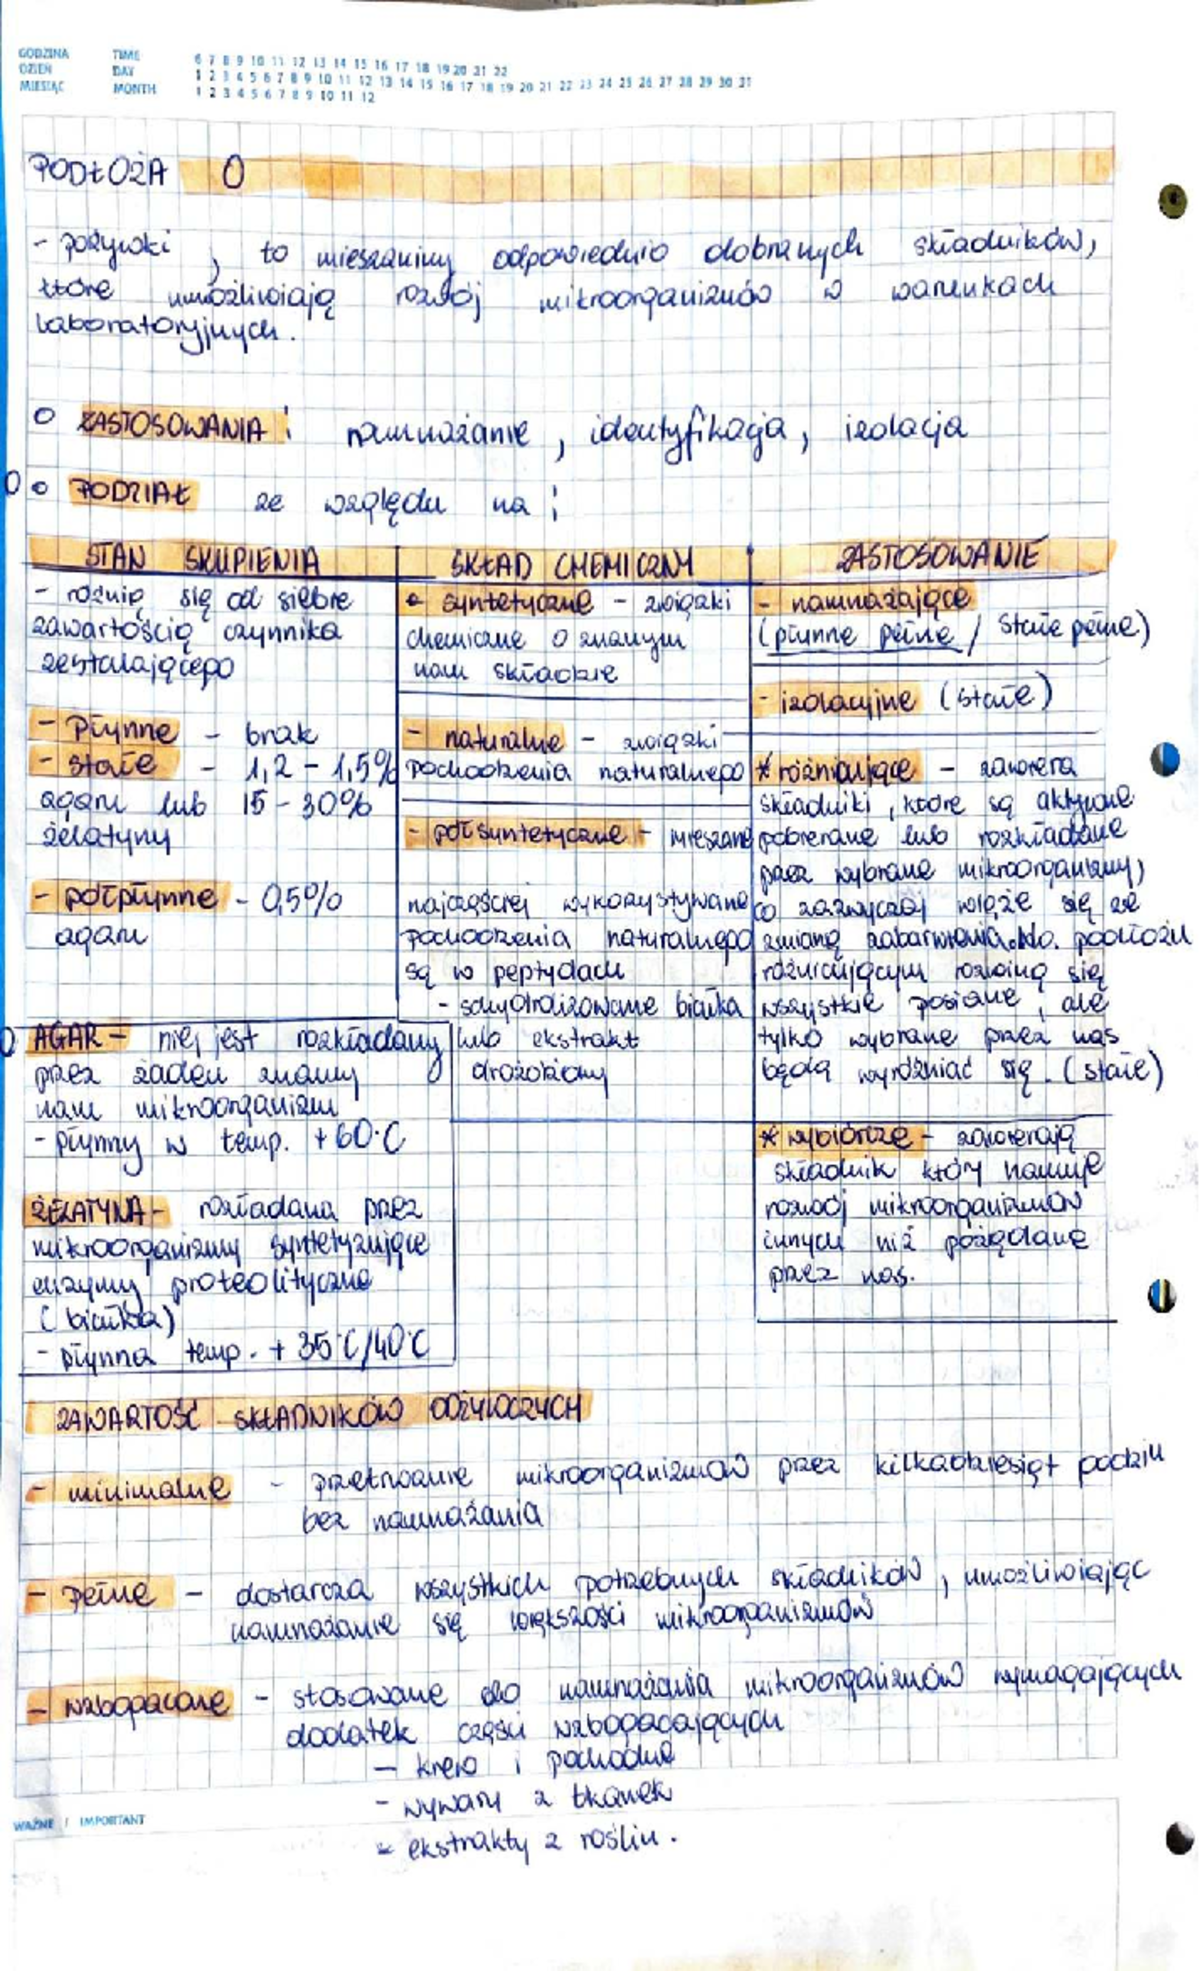 GODZINA TIME 6 7 8 9 10 11 12 13 14 15 16 17 18 19 20 21 22
DZIEŃ DAY 1 2 3 4 5 6 7 8 9 10 11 12 13 14 15 16 17 18 19 20 21 22 23 24 25 26 27 28 29 30 31
MIESIĄC MONTH 1 2 3 4 5 6 7 8 9 10 11 12
PODŁOŻA
- pożywki, to mieszaniny odpowiednio dobranych składników,
które umożliwiają rozwój mikroorganizmów w warunkach
laboratoryjnych.
ZASTOSOWANIA: namnażanie, identyfikacja, izolacja
PODZIAŁ ze względu na:
STAN SKUPIENIA
- różnią się od siebie
zawartością czynnika
zestalającego
- płynne - brak
- stałe - 1,2 - 1,5%
agaru lub 15 - 30%
żelatyny
- półpłynne - 0,5%
agaru
SKŁAD CHEMICZNY
- syntetyczne - związki
chemiczne o znanym
nam składzie
- naturalne - związki
pochodzenia naturalnego
- półsyntetyczne - mieszane
najczęściej wykorzystywane
pochodzenia naturalnego
są w peptydach
- schydrolizowane białka
lub ekstrakt
drożdżowy
ZASTOSOWANIE
- namnażające
(płynne pełne / stałe pełne)
- izolacyjne (stałe)
* różnicujące - zawiera
składniki, które są aktywnie
pobierane lub rozkładane
przez wybrane mikroorganizmy,
co zazwyczaj wiąże się ze
zmianą zabarwienia. Na podłożu
różnicującym rozwiną się
wszystkie posiane, ale
tylko wybrane przez nas
będą wyróżniać się. (stałe)
* wybiórcze - zawierają
składnik który hamuje
rozwój mikroorganizmów
innych niż pożądane
przez nas.
AGAR - nie jest rozkładany
przez żaden znany
nam mikroorganizm
- płynny w temp. +60°C
ŻELATYNA - rozkładana przez
mikroorganizmy syntetyzujące
enzymy proteolityczne
(białka)
- płynna temp. + 35°C/40°C
ZAWARTOŚĆ SKŁADNIKÓW ODŻYWCZYCH
- minimalne - przetrwanie mikroorganizmów przez kilkadziesiąt podziu
bez namnażania
- pełne - dostarcza wszystkich potrzebnych składników, umożliwiając
namnażanie się większości mikroorganizmów
- wzbogacone - stosowane do namnażania mikroorganizmów wymagających
dodatek części wzbogacających
- krew i pochodne
- wywary z tkanek
- ekstrakty z roślin.
WAŻNE / IMPORTANT